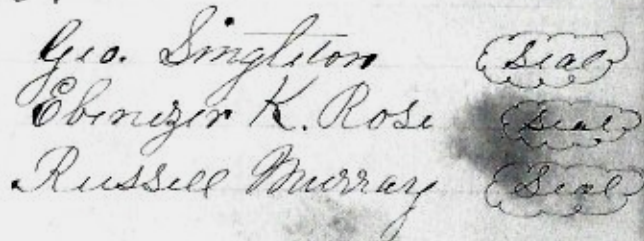 Geo. Singleton Seal
Ebenezer K. Rose Seal
Russell Murray Seal